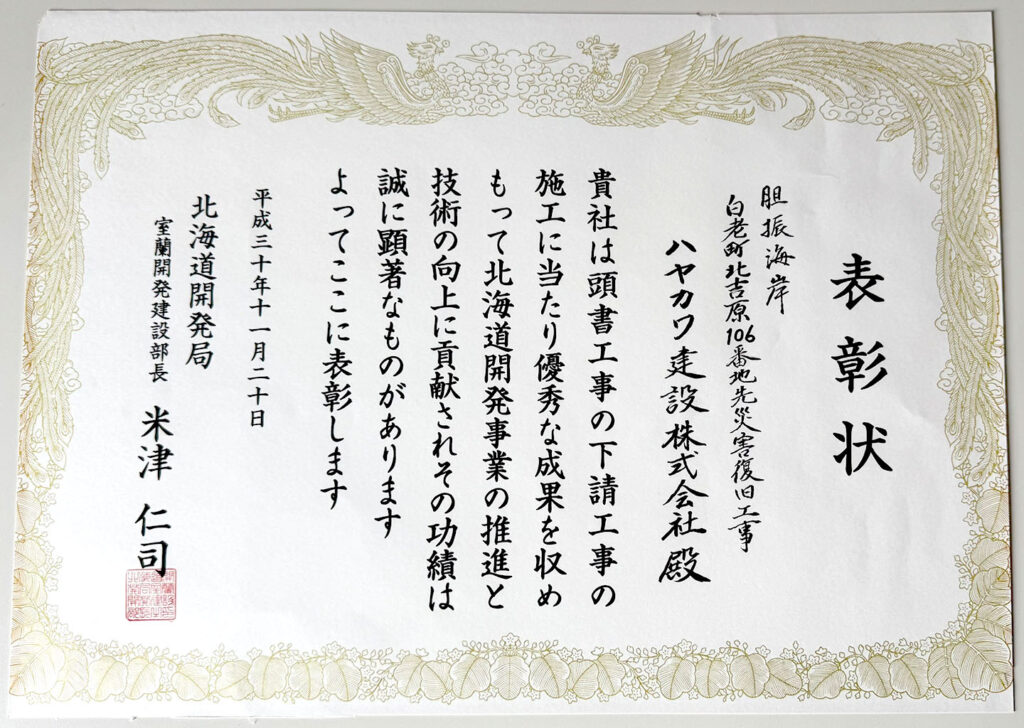 表彰状
胆振海岸
白老町北吉原106番地先災害復旧工事
ハヤカワ建設株式会社殿
貴社は頭書工事の下請工事の
施工に当たり優秀な成果を収め
もって北海道開発事業の推進と
技術の向上に貢献されその功績は
誠に顕著なものがあります
よってここに表彰します
平成三十年十一月二十日
北海道開発局
室蘭開発建設部長 米津 仁司